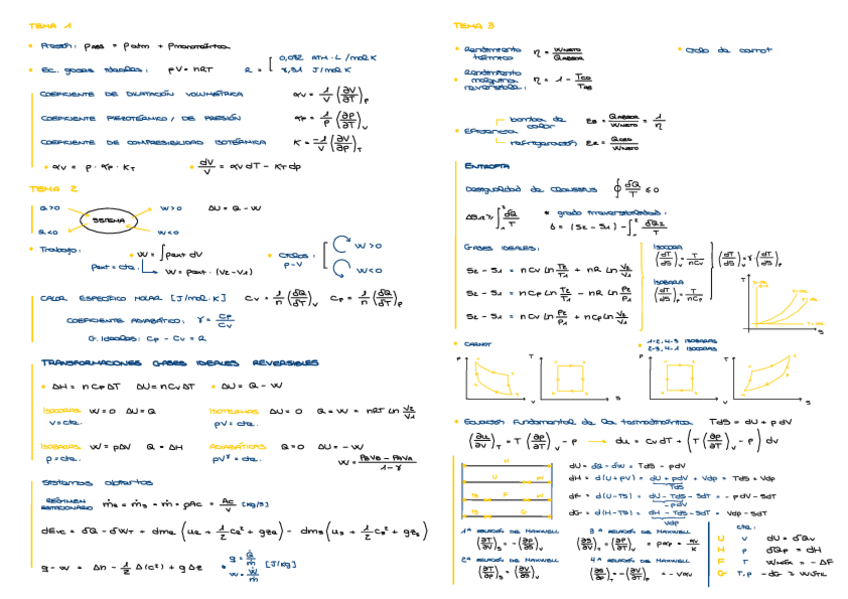 TEMA 1
• Presión: Pabs = Patm + Pmanométrica
• Ec. gases ideales: pV = nRT R = [ 0,082 ATM·L/mol K
8,31 J/mol K
COEFICIENTE DE DILATACIÓN VOLUMÉTRICA αv = 1/V (∂V/∂T)p
COEFICIENTE PIEZOTÉRMICO / DE PRESIÓN αp = 1/p (∂p/∂T)v
COEFICIENTE DE COMPRESIBILIDAD ISOTÉRMICA K = -1/V (∂V/∂p)T
• αv = p · αp · KT • dV/V = αv dT - KT dp
TEMA 2
Q>0 W>0 ΔU = Q - W
SISTEMA
Q<0 W<0
• Trabajo: • W = ∫pext dV • Ciclos: p-V [ W>0
pext = cte. W = pext · (V2-V1) W<0
CALOR ESPECÍFICO MOLAR [J/mol·K] Cv = 1/n (∂Q/∂T)v Cp = 1/n (∂Q/∂T)p
COEFICIENTE ADIABÁTICO: γ = Cp/Cv
G. Ideales: Cp - Cv = R
TRANSFORMACIONES GASES IDEALES REVERSIBLES
• ΔH = nCpΔT ΔU = nCvΔT • ΔU = Q - W
ISOCORAS W = 0 ΔU = Q ISOTERMAS ΔU = 0 Q = W = nRT Ln V2/V1
V = cte. pV = cte.
ISOBARAS W = pΔV Q = ΔH ADIABÁTICAS Q = 0 ΔU = -W
p = cte. pVγ = cte. W = PBVB - PAVA / 1-γ
Sistemas abiertos
RÉGIMEN ESTACIONARIO ṁe = ṁs = ṁ = ρAc = Ac/v [kg/s]
dEvc = δQ - δWT + dme (ue + 1/2 ce² + gze) - dms (us + 1/2 cs² + gzs)
q - w = Δh - 1/2 Δ(c²) + gΔz • q = Q̇/ṁ
w = Ẇ/ṁ [J/kg]
TEMA 3
• Rendimiento térmico η = Wneto/Qabsor • Ciclo de carnot
• Rendimiento máquina reversible: η = 1 - TCO/TAB
• Eficiencia
bomba de calor εB = Qabsor/Wneto = 1/η
refrigeración εR = Qced/Wneto
ENTROPIA
Desigualdad de CLAUSIUS ∮ δQ/T ≤ 0
ΔS ≥ ∫ δQ/T • grado irreversibilidad:
δ = (S2 - S1) - ∫ δQ/T
GASES IDEALES:
S2 - S1 = nCv Ln T2/T1 + nR Ln V2/V1
S2 - S1 = nCp Ln T2/T1 - nR Ln P2/P1
S2 - S1 = nCv Ln P2/P1 + nCp Ln V2/V1
ISOCORA
(∂T/∂S)v = T/nCv
(∂T/∂S)v = γ · (∂T/∂S)p
ISOBARA
(∂T/∂S)p = T/nCp
T
S
• CARNOT • 1-2, 4-3 ISOBARAS
2-3, 4-1 ISOCORAS
P V T S P V T S
• Ecuación Fundamental de la termodinámica TdS = dU + pdV
(∂u/∂v)T = T (∂p/∂T)v - p → du = CvdT + (T (∂p/∂T)v - p) dv
dU = δQ - δW = TdS - pdV
dH = d(U+pV) = dU + pdV + Vdp = TdS + Vdp
TdS
dF = d(U-TS) = dU - TdS - SdT = - pdV - SdT
-pdV
dG = d(H-TS) = dH - TdS - SdT = Vdp - SdT
Vdp
1ª RELACIÓN DE MAXWELL 3ª RELACIÓN DE MAXWELL
(∂T/∂V)s = -(∂p/∂S)v
2ª RELACIÓN DE MAXWELL 4ª RELACIÓN DE MAXWELL
(∂T/∂p)s = (∂V/∂S)p
cte.
U V dU = δQv
H p δQp = dH
F T
G T,p